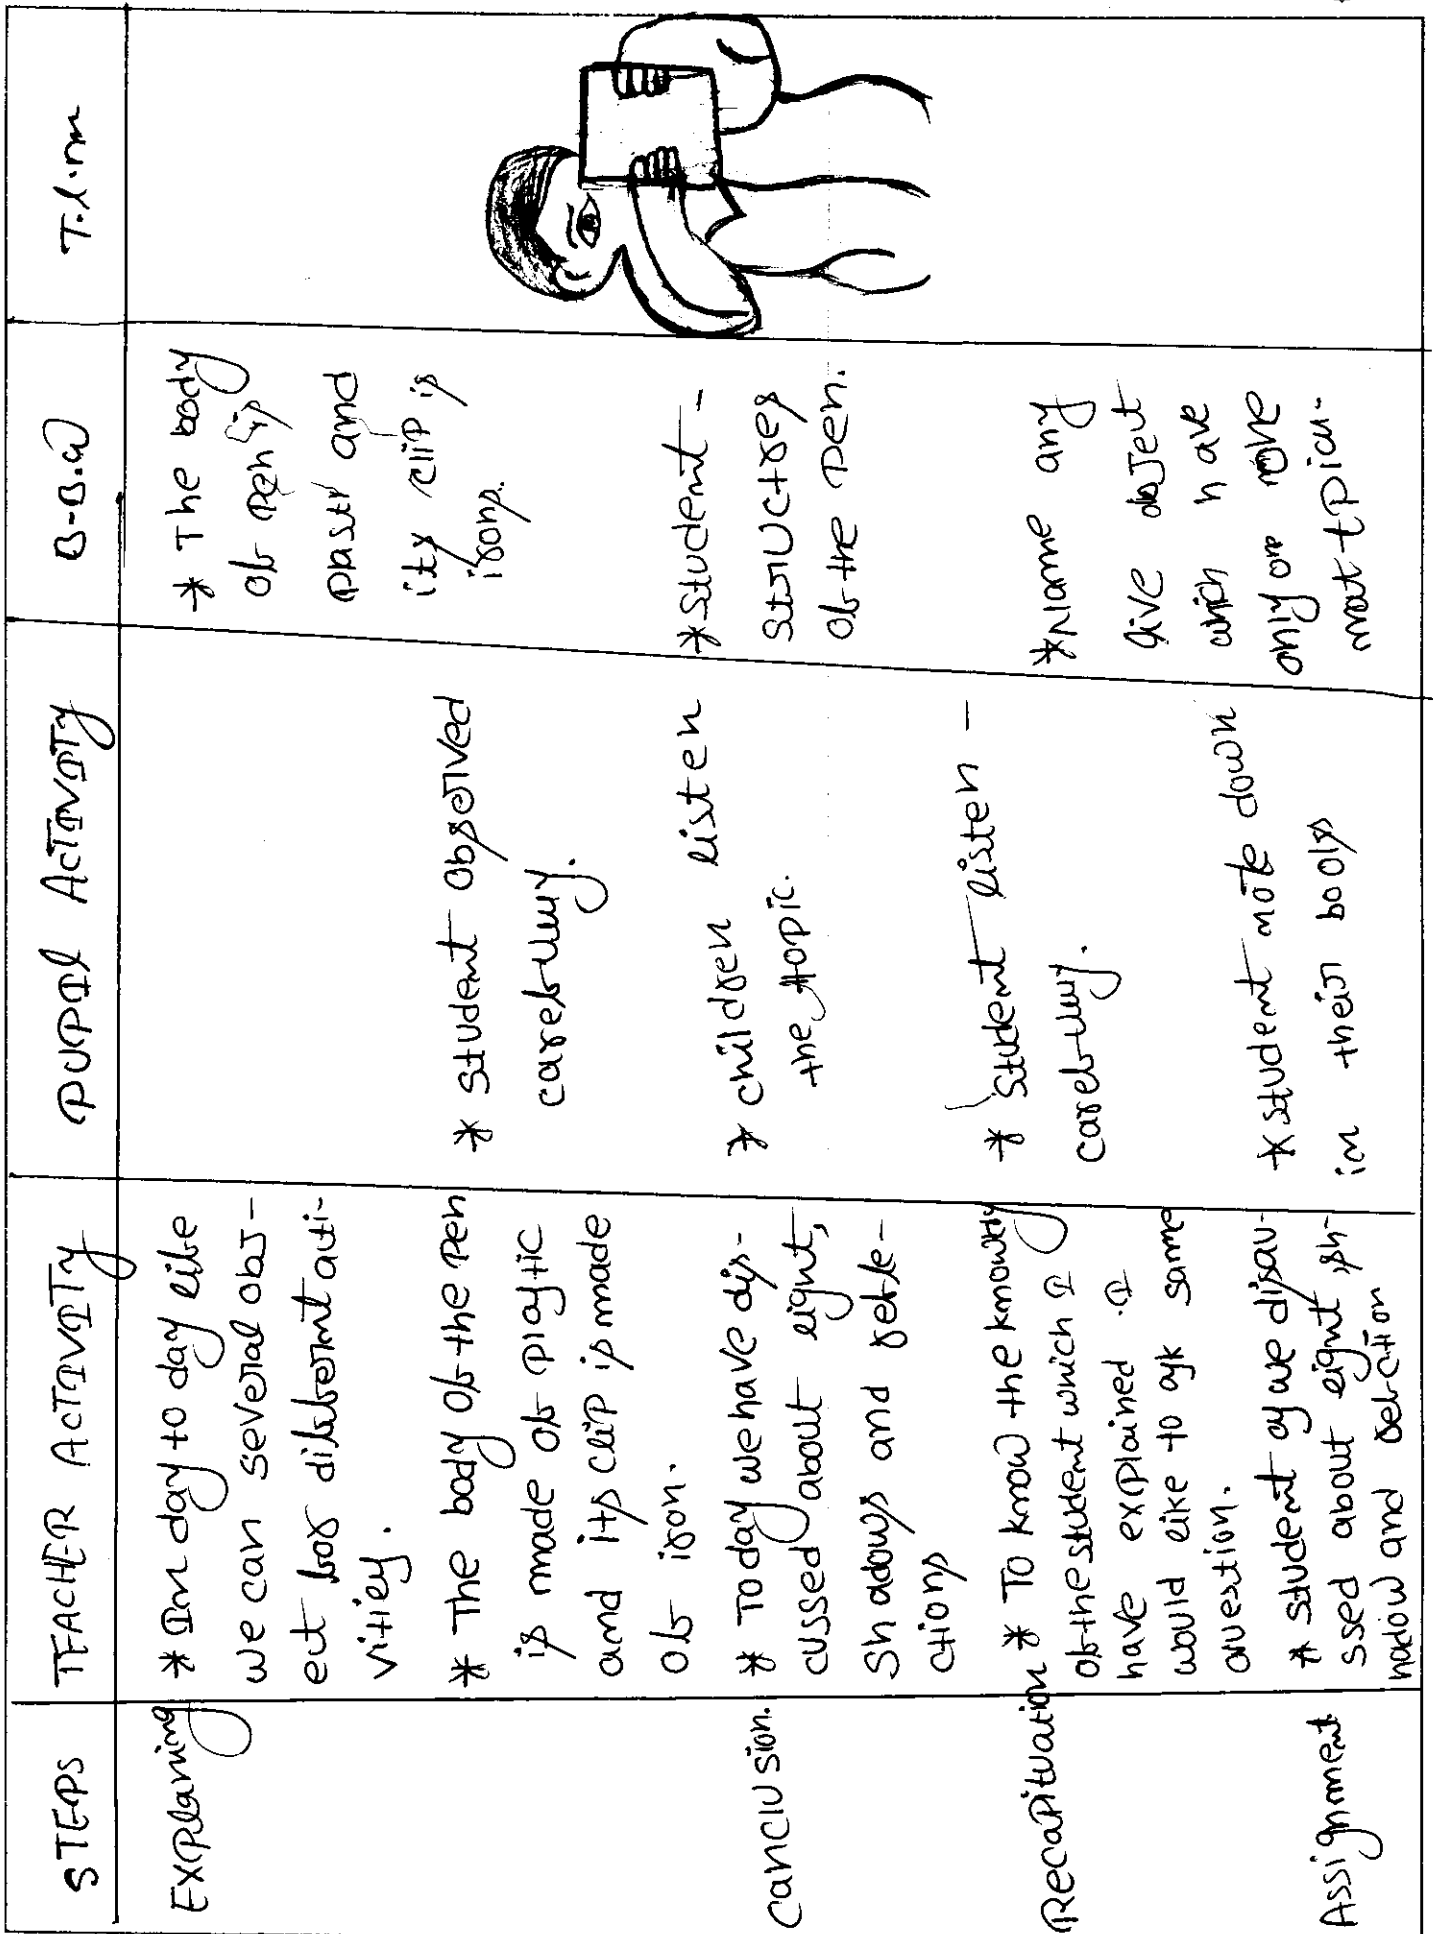 STEPS
TEACHER ACTIVITY
PUPIL ACTIVITY
B-B.W
T.l.m
Explaning
* In day to day life
we can several obj-
ect for different acti-
vities.
* The body of the Pen
is made of plastic
and its clip is made
of iron.
* student observed
carefully.
* The body
of pen is
pastr and
its clip is
iron.
Canclusion.
* Today we have dis-
cussed about light,
Shadows and refle-
ctions
* children listen
the topic.
* Student -
structres
of the pen.
Recapituation
* To know the
of the student which I
have explained . I
would like to ask same
question.
* Student listen -
carefully.
* Name any
give object
which have
only one
Assignment
* student as we
ssed about light, sh-
adow and
* student note down
in their books